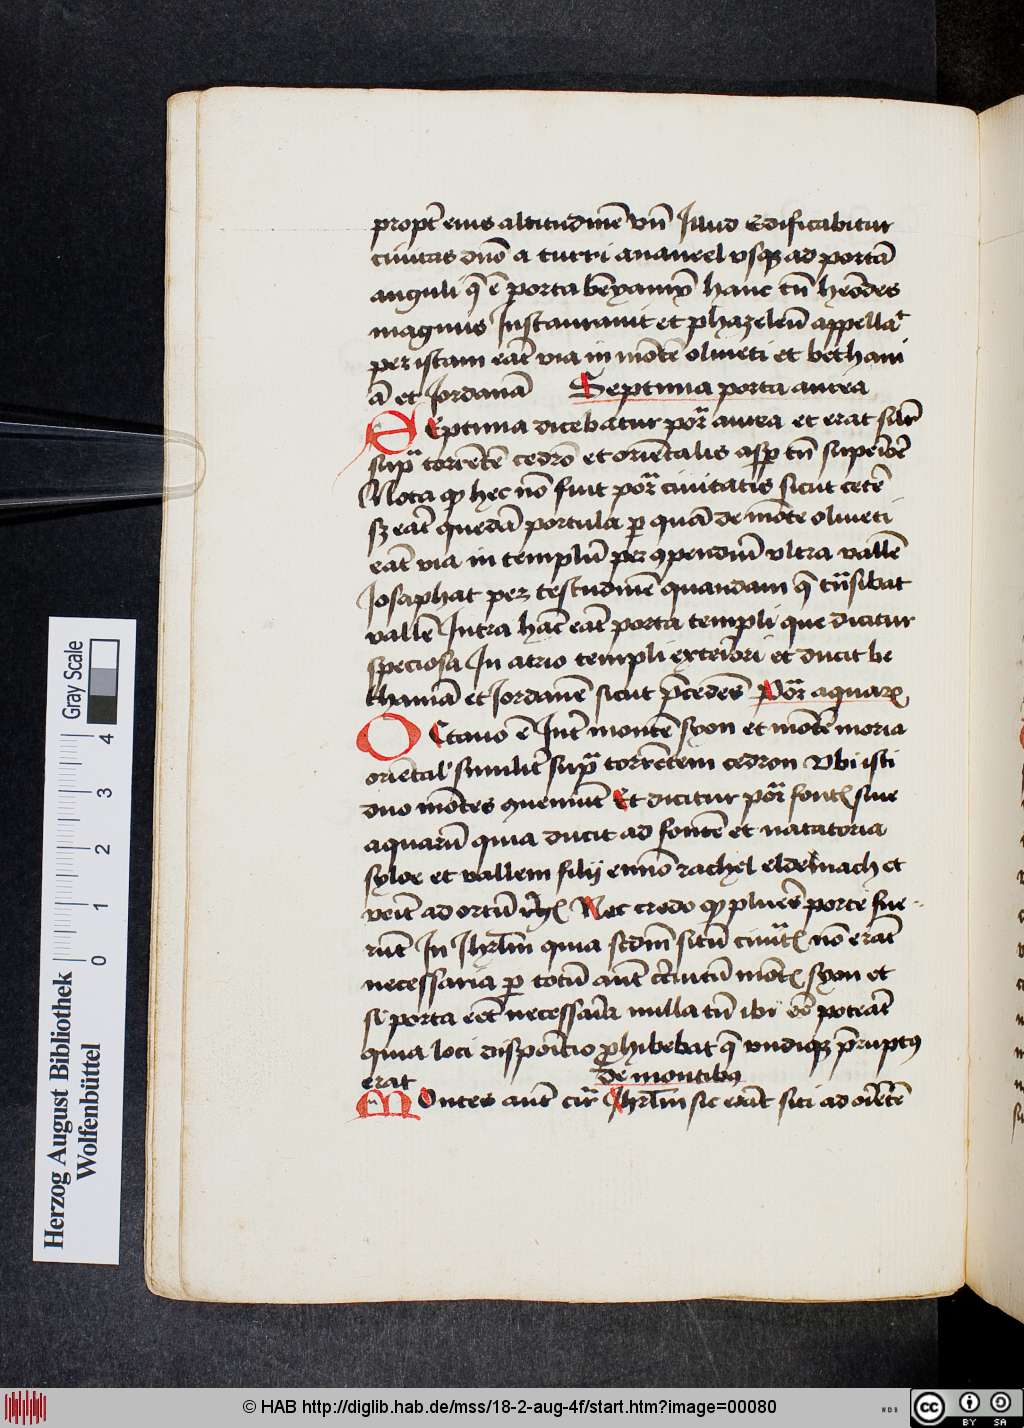 propt̄ eius altitudinē vn̄ Illud Edificabitur
ciuitas dn̄o a turri ananeel vsqꝫ ad portā
anguli q̄ ē porta bēyamyn̄ hanc tn̄ heōdes
magnus Instaurauit et phazeleū appella͛t
per istam eāt via in mōtē oliueti et bethani
ā et Jordanā Septima porta aurea
SEptima dicebatur por̄ aurea et erat sūr
supᵃ torrētē cedrō et oriētalis asp̄ tn̄ supeīorē
Nota qꝫ hec nō fuit por̄ ciuitatis sicut cetē
sꝫ eāt quedā portula ꝑ quā de mōte oliueti
eāt via in templū per ꝯpendiū vltra vallē
Josaphat per testudinē quandam q̄ tn̄sibat
vallē Intra hāc eāt porta templi que dicitur
speciosa In atrio templi exteīori et ducit be
thaniā et Jordanē sicut p̄cedēs Por̄ aquarꝝ
OCtauo ē Int̄ montē syon et mōtē moria
oriētal' similit̄ supᵃ torrētem cedron Vbi isti
duo mōtes ꝯueniūt Et dicitur por̄ fontꝭ siue
aquarū quia ducit ad fontē et natatoria
syloe et vallem filij ennō rachel eldemach et
veīt ad ortū Nec credo qꝫ plures porte fue-
rūt In Jhrlm̄ quia scdm̄ sitū ciuitꝭ nō erāt
necessaria ꝑ totū aūt circuitū mōtꝭ syon et
si porta eēt necessaīa nulla tn̄ ibi eē poteāt
quia loci dispoīcio ꝓhibebat q̄ vndiqꝫ p̄ruptꝰ
erat De montibꝰ
MOntes aūt cir̄ Jhrlm̄ sic erāt siti ad oīētē
Herzog August Bibliothek
Wolfenbüttel
0 1 2 3 4
Gray Scale
© HAB http://diglib.hab.de/mss/18-2-aug-4f/start.htm?image=00080
WDB
cc BY SA